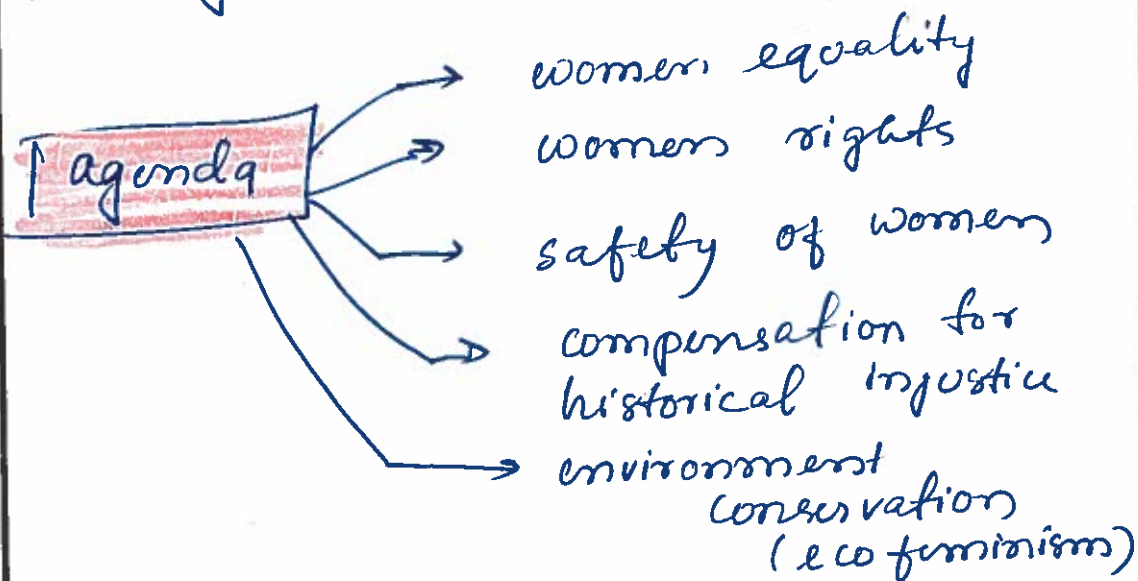 agenda
women equality
women rights
safety of women
compensation for
historical injustice
environment
conservation
(eco feminism)